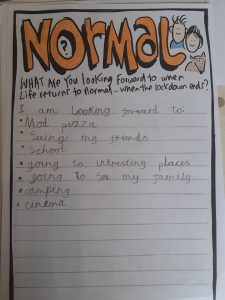 NORMAL
?
WHAT ARE YOU LOOKING FORWARD TO WHEN
LIFE RETURNS TO NORMAL... WHEN THE LOCKDOWN ENDS?
I am looking forward to:
• Mod pizza
• Seeing my friends
• School
• going to intresting places
• going to see my family.
• camping
• cinema